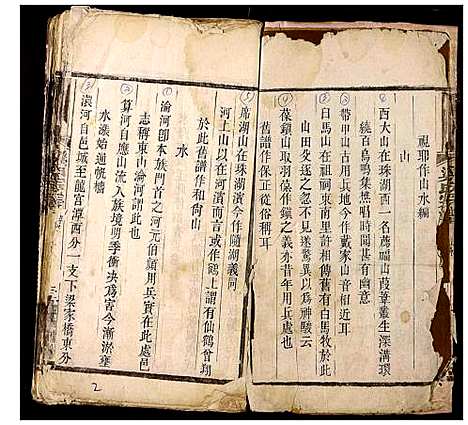 視耶作山水編
山
西大山在珠湖西一名蔗㽲山葭葦叢生深溝環
繞百鳥鳴集樵唱時聞甚有幽意
帶甲山古用兵地今作戴家山音相近耳
白馬山在祖祠東南里許相傳舊有白馬牧於此
山田交逐之忽不見遂驚異以為神駿云
葆鎮山取羽葆作鎮之義亦昔年用兵處也
舊譜作保正從俗稱耳
席湖山在珠湖濱今作隨湖義同
河上山以在河濱而言或作鶴上謂有仙鶴曾翔
於此舊譜作和尚山
水
瀹河卽本族門首之河元伯顏用兵實在此處邑
志稱東古瀹河謂此也
算河自應山流入族境明季衝決為害今漸淤壅
水漾始通帆檣
澴河自邑城至龍宮潭西分一支下梁家橋東分
2